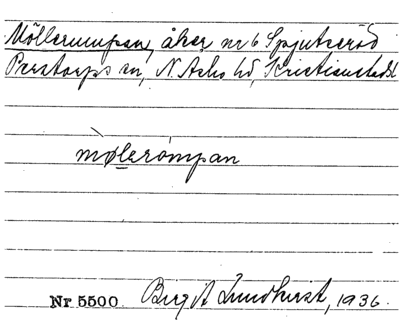 Möllerumpan, åker nr 6 Spjutseröd
Perstorps sn, N. Åsbo hd, Kristianstads l.
mølerómpan
Nr 5500 Birgit Lundkvist, 1936.